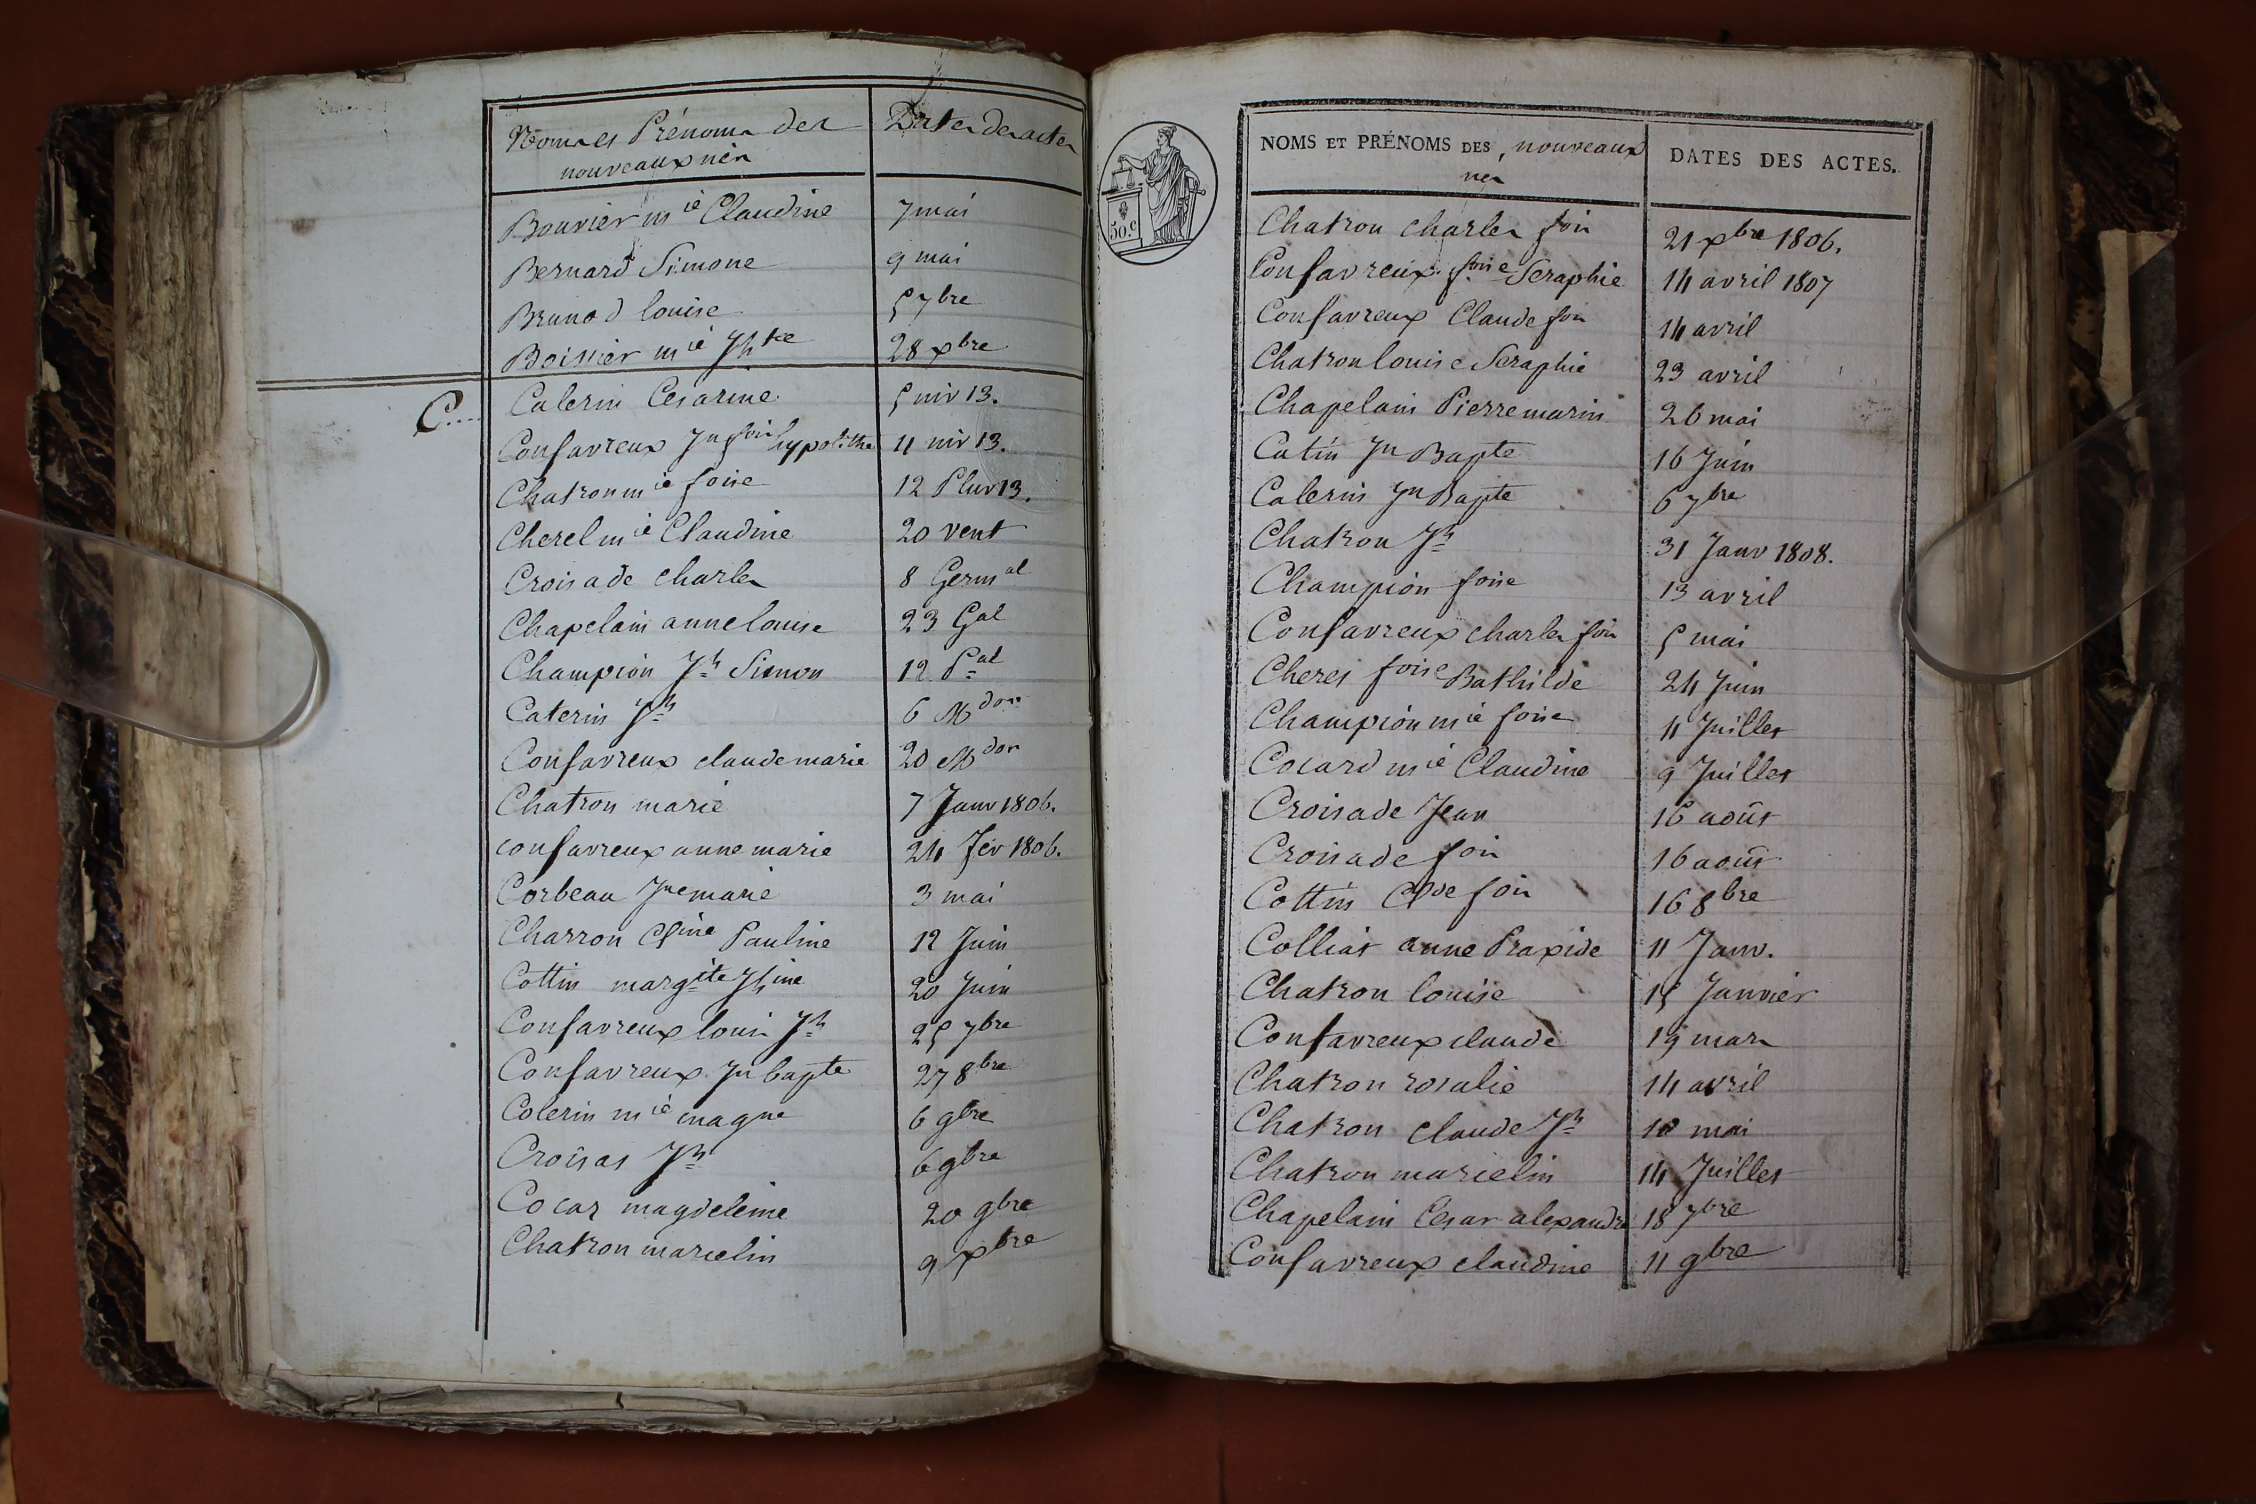 Noms et Prénoms des nouveaux nés Dates des actes
Bouvier mie Claudine 7 mai
Bernard Simone 9 mai
Brunod louise 5 7bre
Boissier mie Jhte 28 xbre
C...
Calerin Cesarine 5 niv 13.
Confavreux Jn fois hypolithe 11 niv 13.
Chatron mie foise 12 Pluv 13.
Cherel mie Claudine 20 vent
Croisade charles 8 Germal
Chapelain anne louise 23 Gal
Champion Jh Simon 12 Pal
Caterin Jh 6 Mdor
Confavreux claude marie 20 Mdor
Chatron marie 7 Janv 1806.
confavreux anne marie 24 Fév 1806.
Corbeau Jne marie 3 mai
Charron Cline Pauline 12 Juin
Cottin margite Jhine 20 Juin
Confavreux louis Jh 25 7bre
Confavreux Jn bapte 27 8bre
Colerin mie magne 6 9bre
Croisas Jh 6 9bre
Cocar magdeleine 20 9bre
Chatron marcelin 9 xbre
50.c
NOMS ET PRÉNOMS DES nouveaux nés DATES DES ACTES.
Chatron charles fois 21 xbre 1806.
Confavreux foise Seraphie 14 avril 1807
Confavreux Claude fois 14 avril
Chatron louise Seraphie 23 avril
Chapelain Pierre marin 26 mai
Catin Jn Bapte 16 Juin
Calerin Jn Bapte 6 7bre
Chatron Jh 31 Janv 1808.
Champion foise 13 avril
Confavreux charles fois 5 mai
Cheres foise Bathilde 24 Juin
Champion mie foise 11 Juillet
Cocard mie Claudine 9 Juillet
Croisade Jean 16 août
Croisade fois 16 août
Cottin Clde fois 16 8bre
Colliat anne Praxide 11 Janv.
Chatron louise 15 Janvier
Confavreux claude 19 mars
Chatron rosalie 14 avril
Chatron claude Jh 18 mai
Chatron marcelin 14 Juillet
Chapelain Cesar alexandre 18 7bre
Confavreux claudine 11 9bre